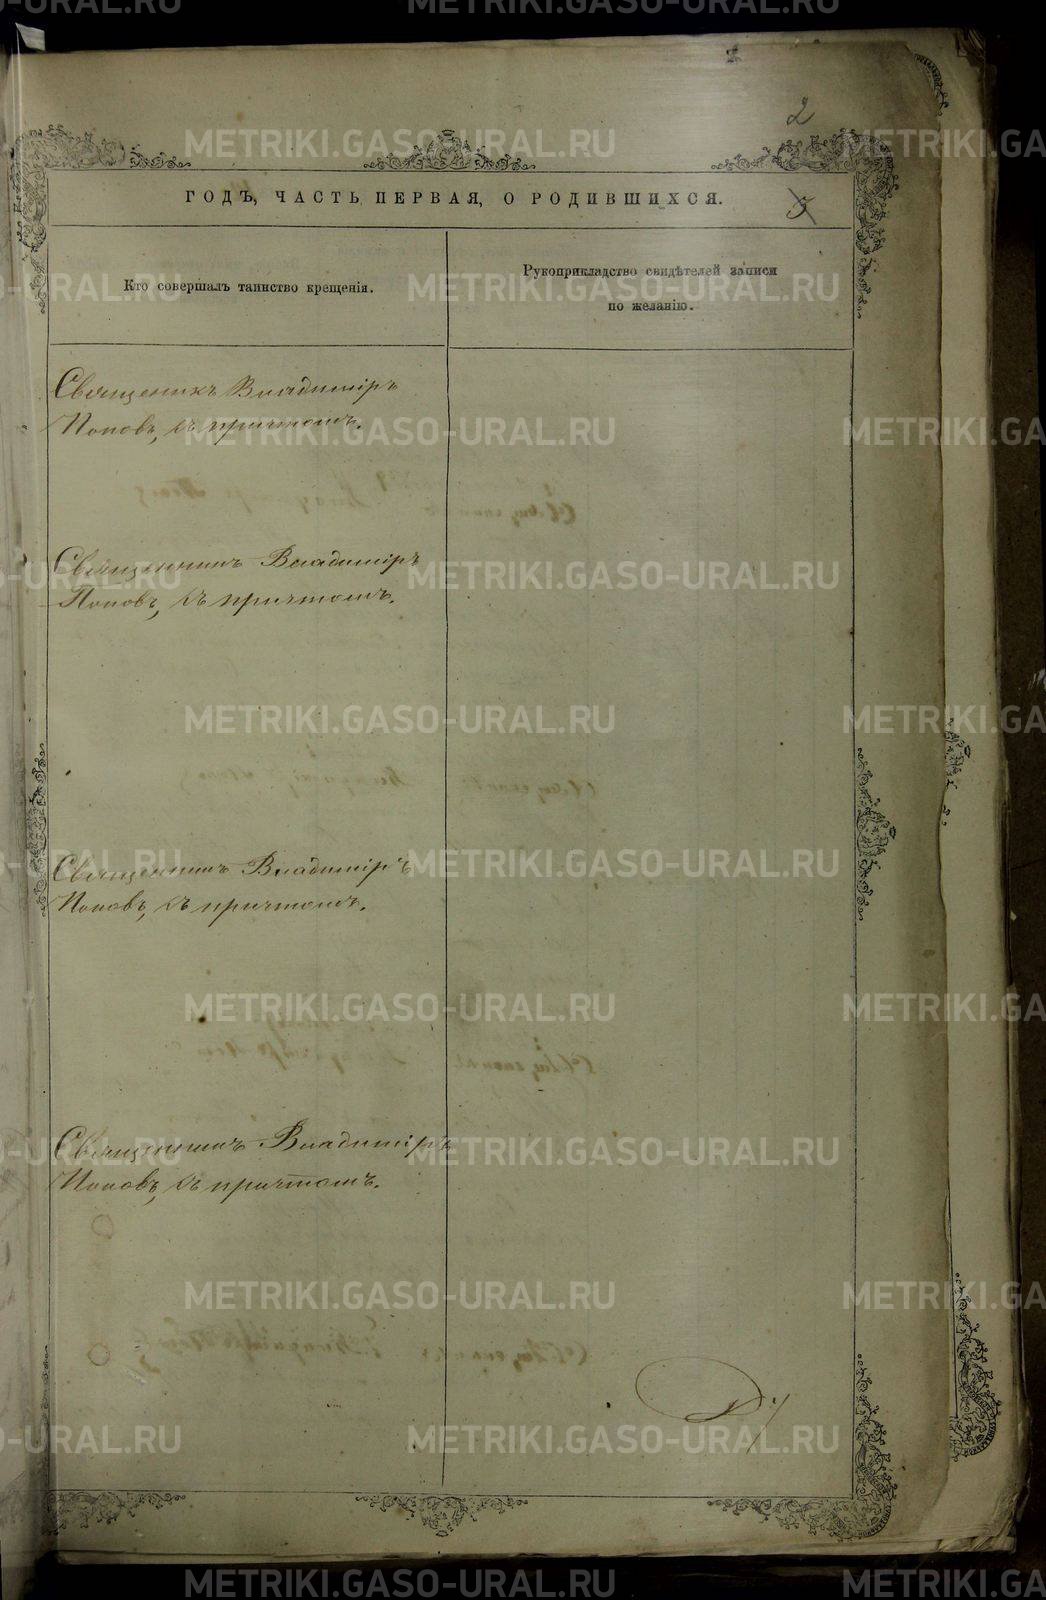 2
ГОДЪ, ЧАСТЬ ПЕРВАЯ, О РОДИВШИХСЯ.
3
Кто совершалъ таинство крещенія.
Рукоприкладство свидѣтелей записи
по желанію.
Священикъ Владиміръ
Поповъ, съ причтомъ.
Священникъ Владиміръ
Поповъ, съ причтомъ.
Священникъ Владиміръ
Поповъ, съ причтомъ.
Священникъ Владиміръ
Поповъ, съ причтомъ.
METRIKI.GASO-URAL.RU